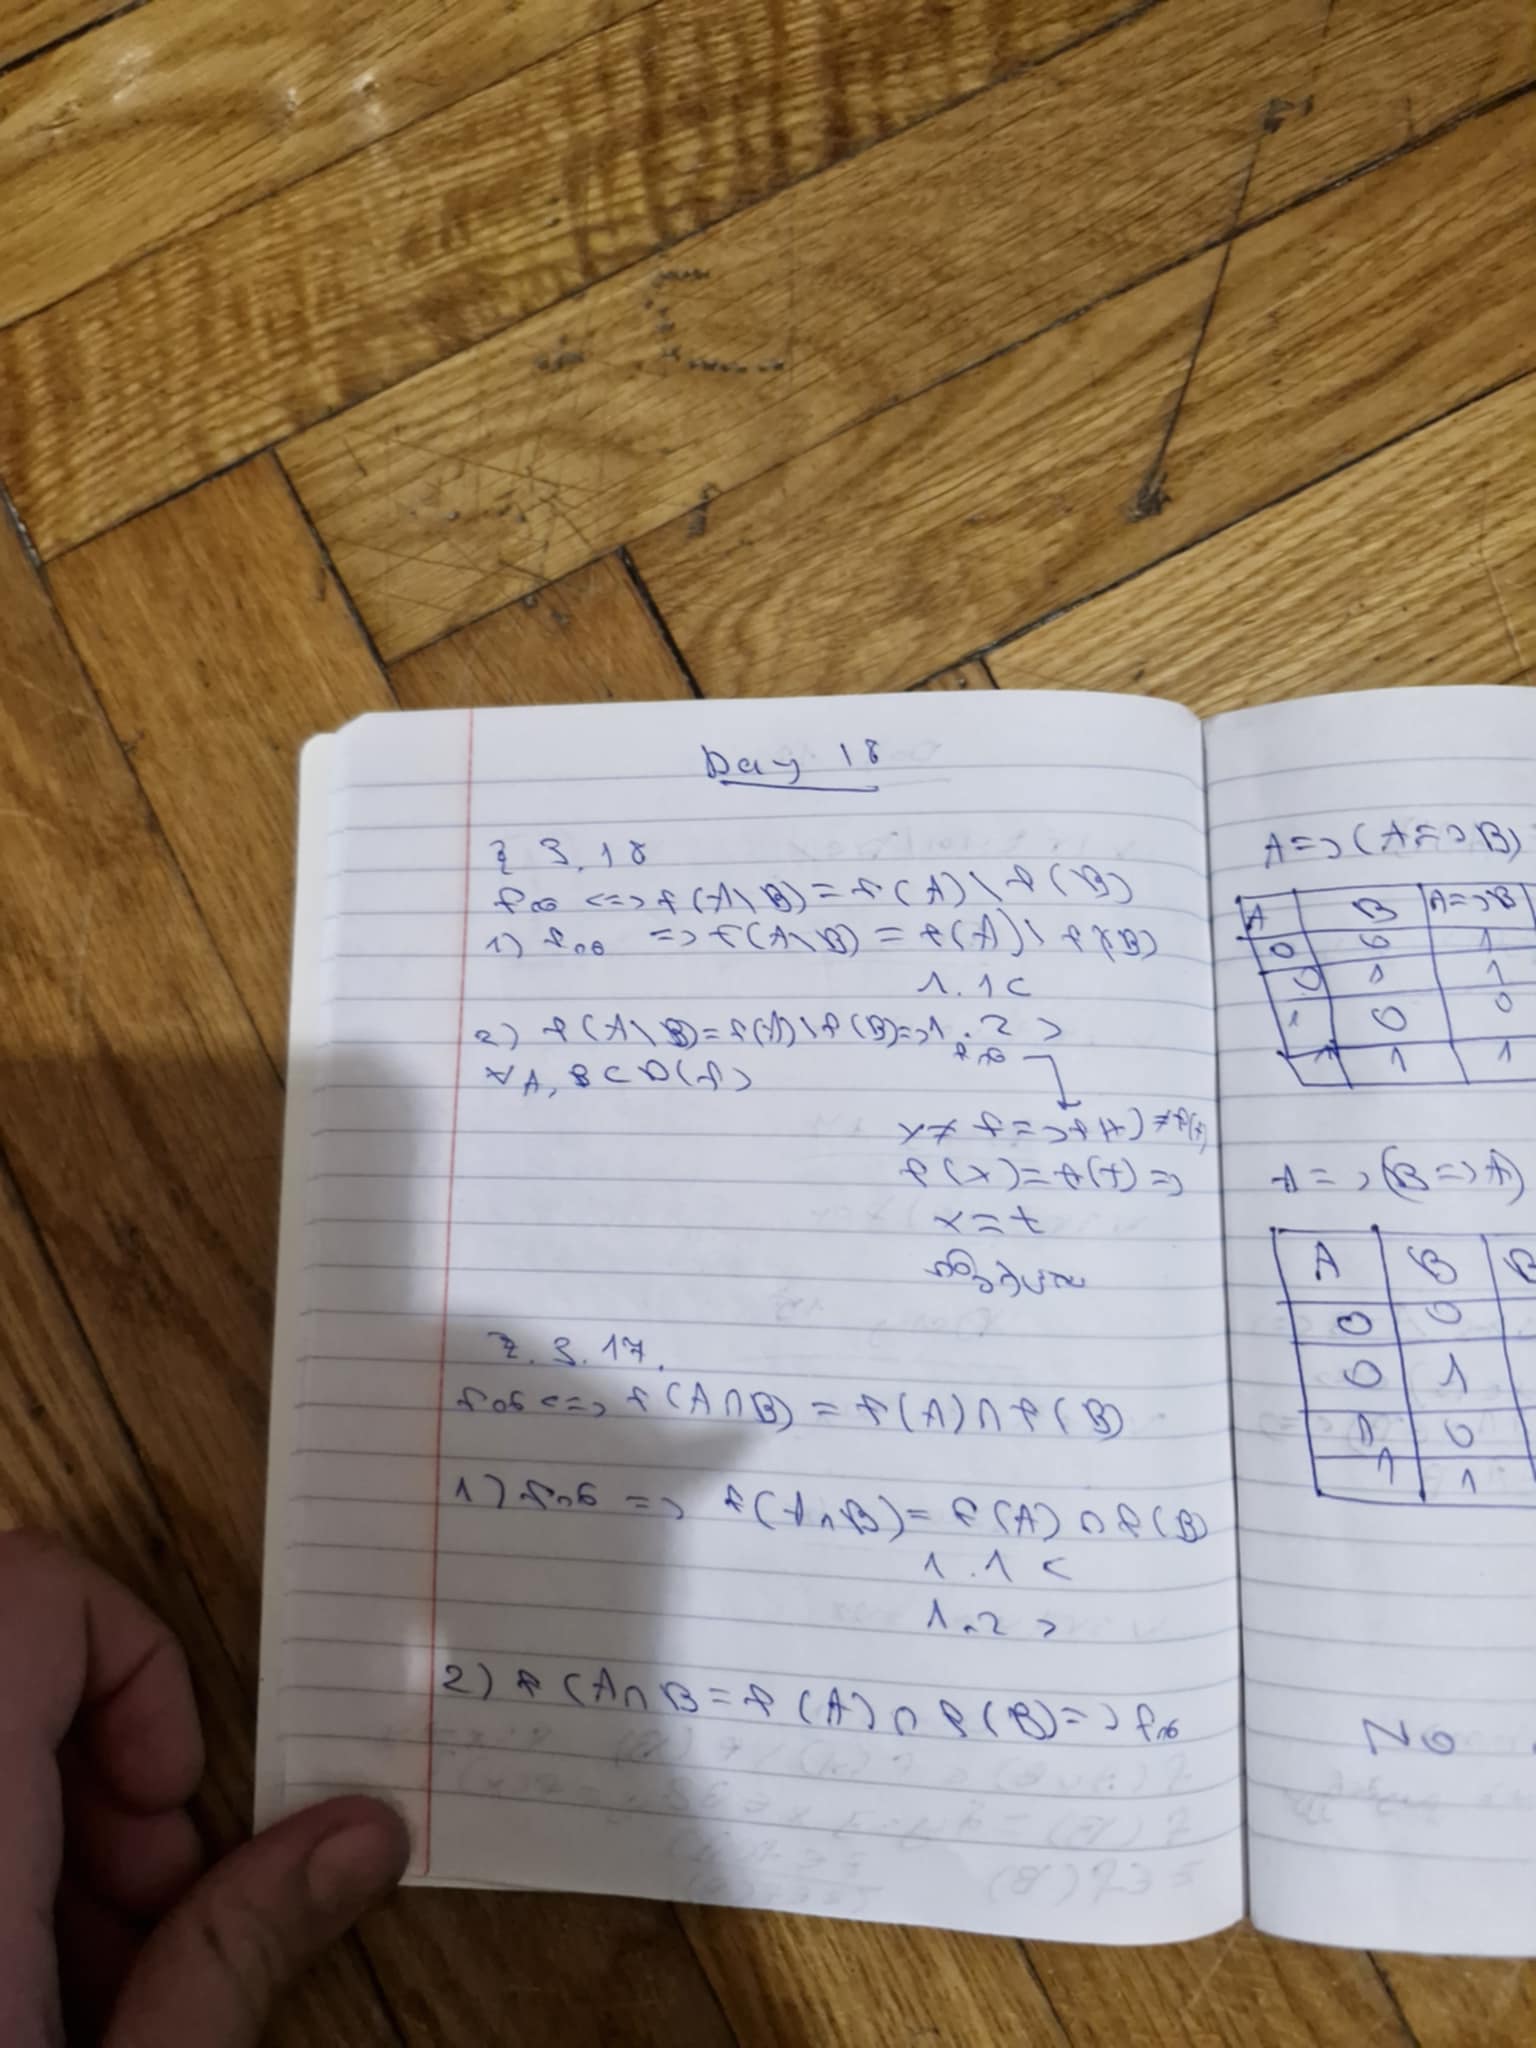 Day 18
Z 3.18
f об <=> f(A\B) = f(A) \ f(B)
1) f об => f(A\B) = f(A) \ f(B)
1.1 ⊂
2) f(A\B) = f(A) \ f(B) => 1.2 ⊃
f об
∀ A, B ⊂ D(f)
x ≠ t => f(x) ≠ f(t)
f(x) = f(t) =>
x = t
Z. 3.17.
f об <=> f(A∩B) = f(A) ∩ f(B)
1) f об => f(A∩B) = f(A) ∩ f(B)
1.1 ⊂
1.2 ⊃
2) f(A∩B = f(A) ∩ f(B) => f об
A => (A => B)
A B A=>B
0 0 1
0 1 1
1 0 0
1 1 1
A => (B => A)
A B B
0 0
0 1
1 0
1 1
No